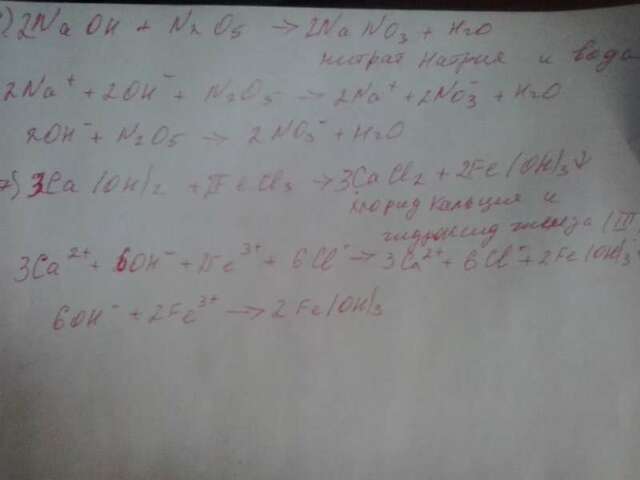 ) 2NaOH + N₂O₅ → 2NaNO₃ + H₂O
нитрат натрия и вода
2Na⁺ + 2OH⁻ + N₂O₅ → 2Na⁺ + 2NO₃⁻ + H₂O
2OH⁻ + N₂O₅ → 2NO₃⁻ + H₂O
) 3Ca(OH)₂ + 2FeCl₃ → 3CaCl₂ + 2Fe(OH)₃↓
хлорид кальция и
гидроксид железа (III)
3Ca²⁺ + 6OH⁻ + 2Fe³⁺ + 6Cl⁻ → 3Ca²⁺ + 6Cl⁻ + 2Fe(OH)₃↓
6OH⁻ + 2Fe³⁺ → 2Fe(OH)₃